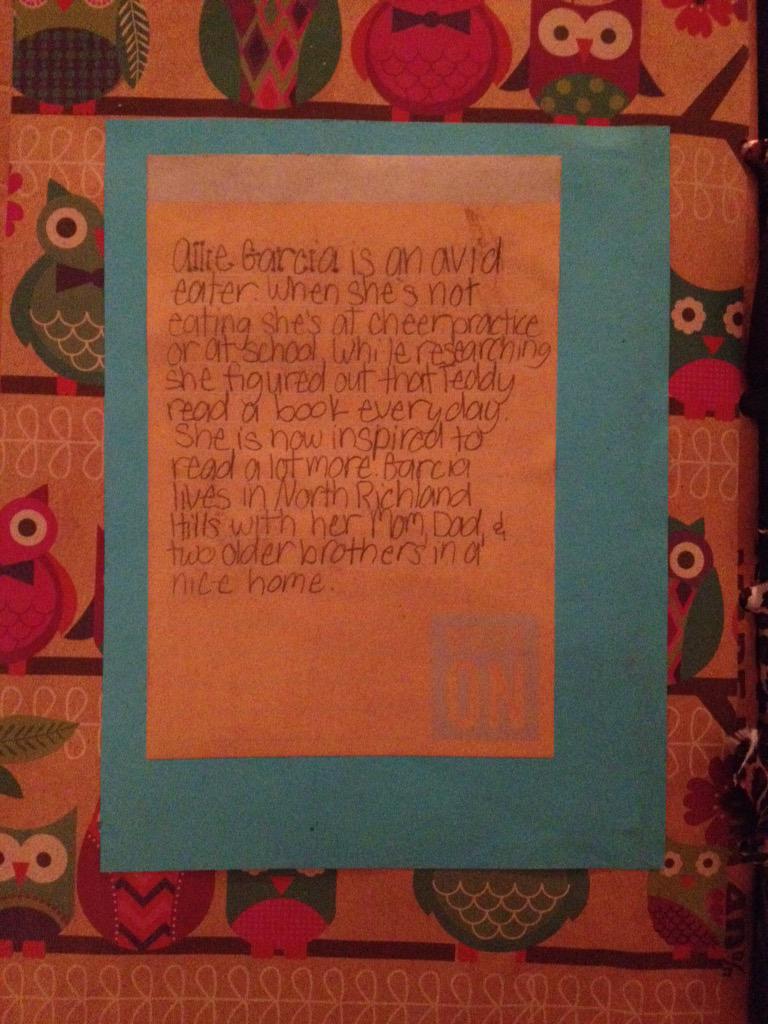 Allie Garcia is an avid
eater. When she's not
eating she's at cheer practice
or at school. While researching
she figured out that Teddy
read a book everyday.
She is now inspired to
read a lot more. Garcia
lives in North Richland
Hills with her Mom, Dad, &
two older brothers in a
nice home.